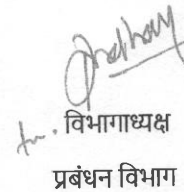 विभागाध्यक्ष
प्रबंधन विभाग